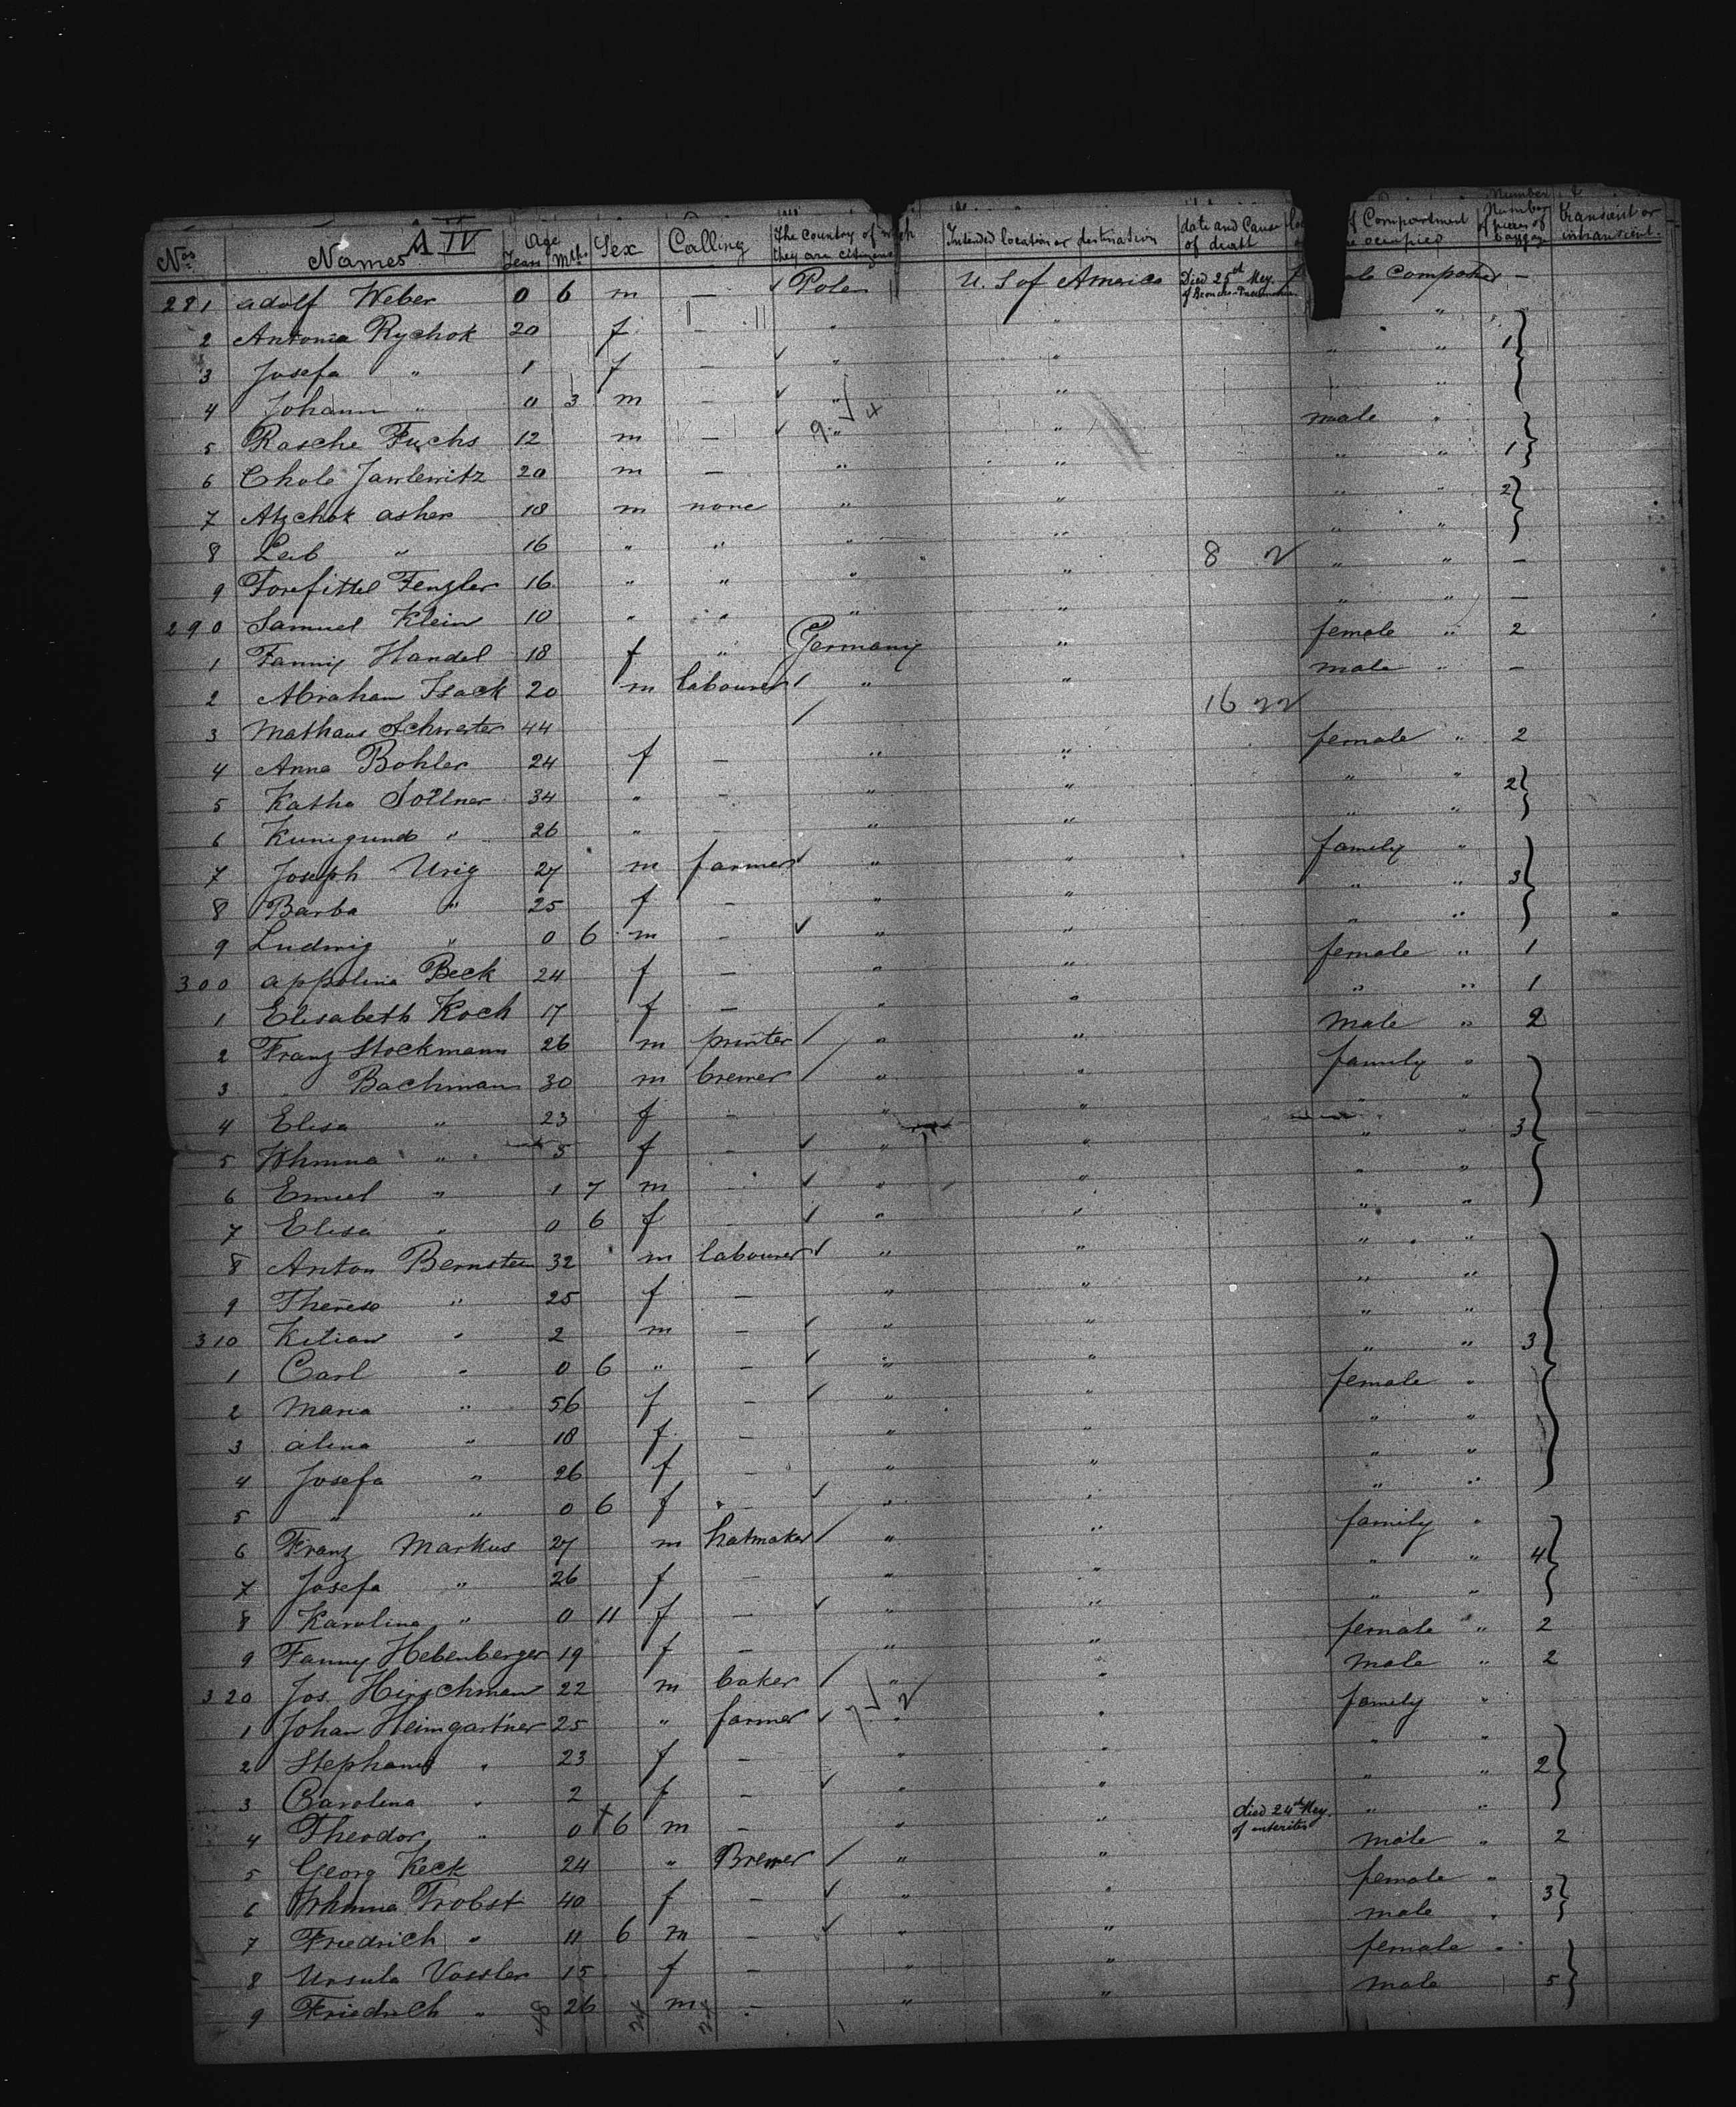 Nos Names A IV Age Years Mths Sex Calling The country of which they are citizens Intended location or destination date and Cause of death of Compartment occupied Number of pieces of baggage transient or intransient.
281 Adolf Weber 0 6 m — Pole U. S of America Died 25th May. of Broncho-Pneumonia Compartmt —
2 Antonia Rychok 20 f — " " " "
3 Josefa " 1 f — " " " " 1
4 Johann " 0 3 m — " " " "
5 Rasche Fuchs 12 m — " " male "
6 Chole Jawlewitz 20 m — " " " " 1
7 Atzchok Asher 18 m none " " " " 2
8 Leib " 16 " " " " " "
9 Fenzler 16 " " " " 8 2 " " —
290 Samuel Klein 10 " " " " " " —
1 Fanny Handel 18 f " Germany " female " 2
2 Abraham Isack 20 m labourer " " male " —
3 Mathaus Schwester 44 16 22
4 Anna Bohler 24 f — " " female " 2
5 Katha Söllner 34 " — " " " " 2
6 Kunigunde " 26 " — " " " "
7 Joseph Urig 27 m farmer " " family "
8 Barba " 25 f — " " " " 3
9 Ludwig " 0 6 m — " " " "
300 Appolina Beck 24 f — " " female " 1
1 Elisabeth Koch 17 f — " " " " 1
2 Franz Stockmann 26 m printer " " Male " 2
3 " Bachman 30 m brewer " " family "
4 Elisa " 23 f — " " " "
5 " 5 f — " " " " 3
6 Emiel " 1 7 m — " " " "
7 Elisa " 0 6 f — " " " "
8 Anton Bernstein 32 m labourer " " " "
9 Therese " 25 f — " " " "
310 Kilian " 2 m — " " " "
1 Carl " 0 6 " — " " " " 3
2 Maria " 56 f — " " female "
3 Alina " 18 f — " " " "
4 Josefa " 26 f — " " " "
5 " " 0 6 f — " " " "
6 Franz Markus 27 m hatmaker " " family "
7 Josefa " 26 f — " " " " 4
8 Karolina " 0 11 f — " " " "
9 Fanny Hebenberger 19 f — " " female " 2
320 Jos. Hirschman 22 m baker " " male " 2
1 Johan Heimgartner 25 " farmer " " family "
2 Stephanie " 23 f — " " " "
3 Carolina " 2 f — " " " " 2
4 Theodor " 0 6 m — " " died 24th May. of enteritis " "
5 Georg Keck 24 " Brewer " " male " 2
6 Trobst 40 f — " " female "
7 Friedrich " 11 6 m — " " male " 3
8 Ursula Vossler 15 f — " " female "
9 Friedrich " 26 m — " " male 5
48 24 24